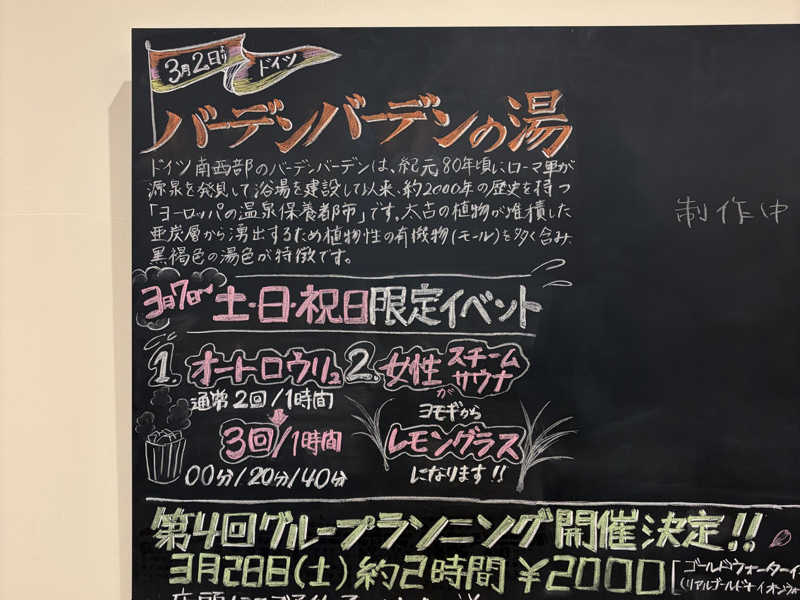 3月2日(月) ドイツ
バーデンバーデンの湯
ドイツ南西部のバーデンバーデンは、紀元80年頃にローマ軍が
源泉を発見して浴場を建設して以来、約2000年の歴史を持つ
「ヨーロッパの温泉保養都市」です。太古の植物が堆積した
亜炭層から湧出するため植物性の有機物(モール)を多く含み、
黒褐色の湯色が特徴です。
制作中
3月7日〜土・日・祝日限定イベント
1. オートロウリュ
通常2回/1時間
3回/1時間
00分/20分/40分
2. 女性スチームサウナが
ヨモギから
レモングラス
になります!!
第4回グループランニング開催決定!!
3月28日(土)約2時間 ¥2000
[ゴールドウォーターイ
(リアルゴールド+イオンウォ